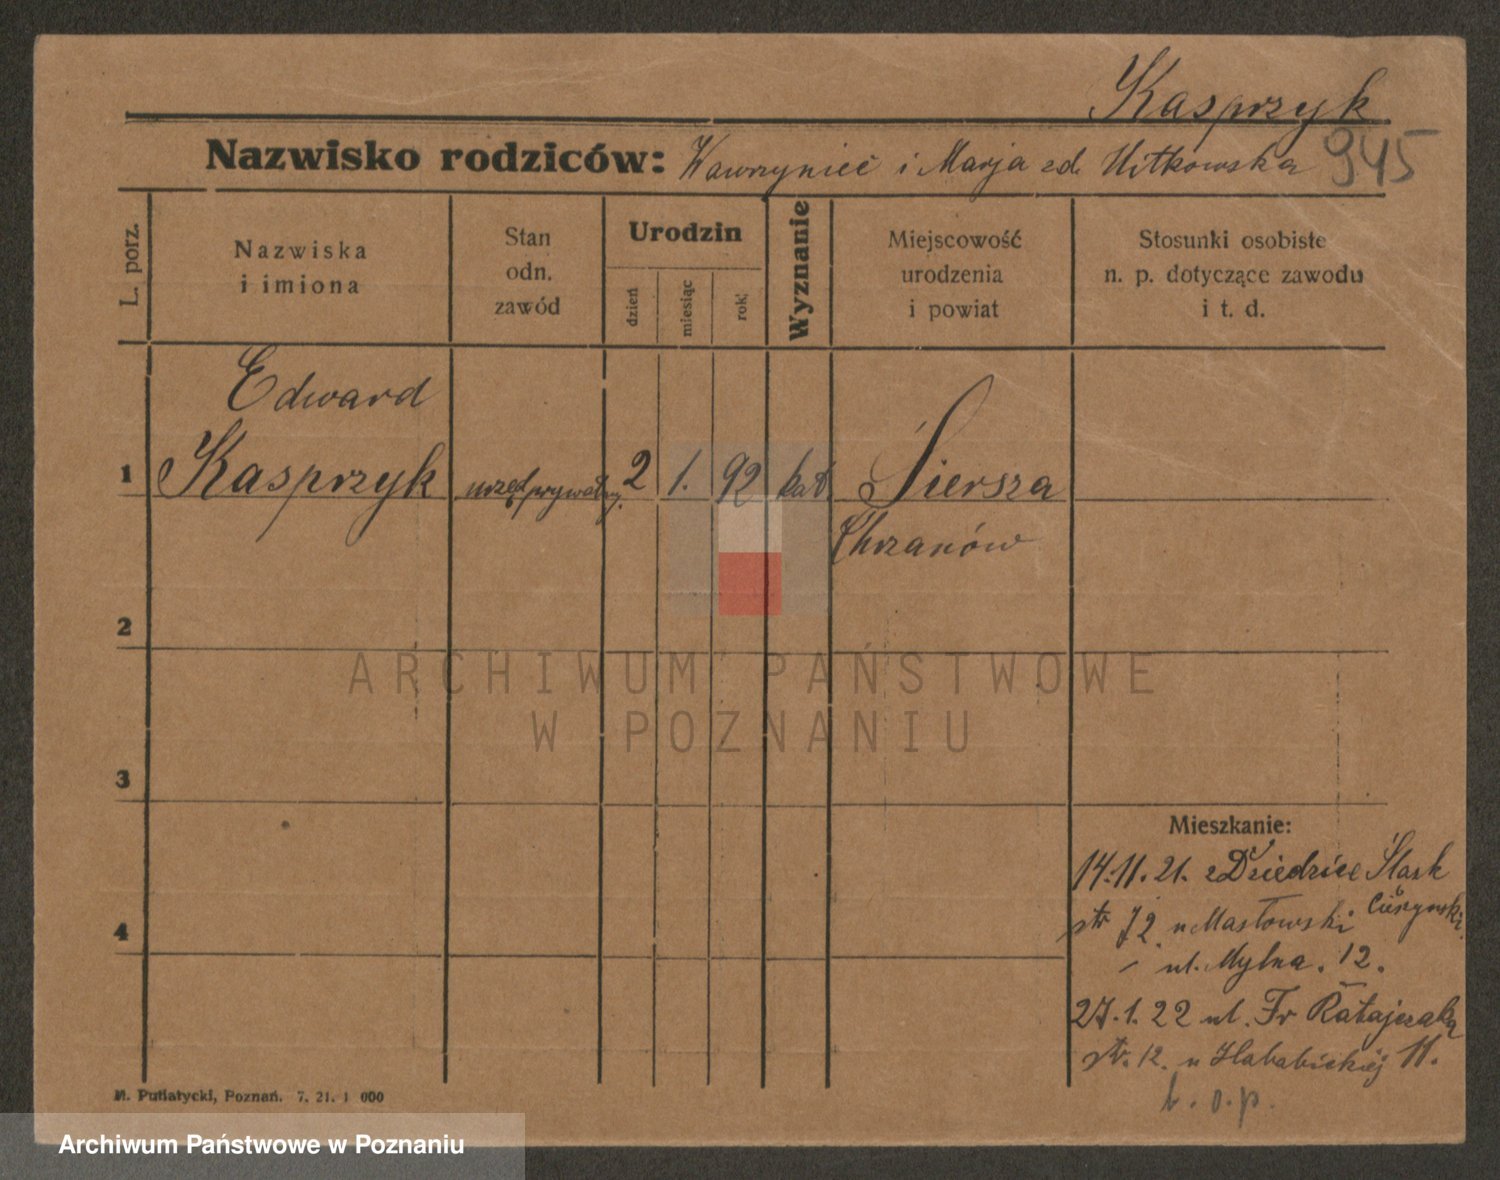 Kasprzyk
Nazwisko rodziców: Wawrzyniec i Marja zd. Witkowska 945
L. porz.
Nazwiska
i imiona
Stan
odn.
zawód
Urodzin
dzień
miesiąc
rok
Wyznanie
Miejscowość
urodzenia
i powiat
Stosunki osobiste
n. p. dotyczące zawodu
i t. d.
Edward
1 Kasprzyk urzęd. prywatny. 2 1. 92 kat. Siersza
Chrzanów
2
ARCHIWUM PAŃSTWOWE
W POZNANIU
3
Mieszkanie:
14.11.21. z Dziedzice Śląsk
Cieszyński
4
str 72 u Masłowski
ul. Mylna. 12.
27.1.22 ul. Fr Ratajczaka
str. 12. u 11.
b. o. p.
M. Putiatycki, Poznań. 7. 21. 1 000
Archiwum Państwowe w Poznaniu